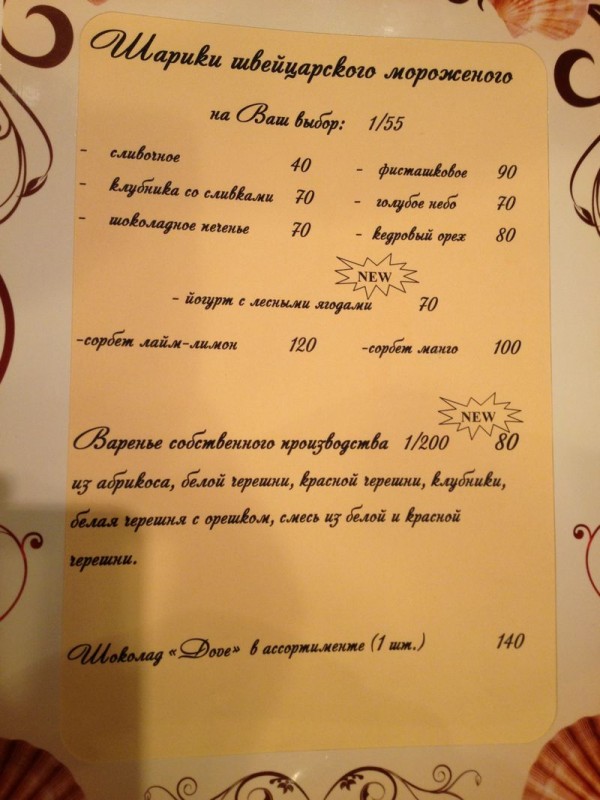 Шарики швейцарского мороженого
на Ваш выбор: 1/55
- сливочное 40 - фисташковое 90
- клубника со сливками 70 - голубое небо 70
- шоколадное печенье 70 - кедровый орех 80
NEW
- йогурт с лесными ягодами 70
-сорбет лайм-лимон 120 -сорбет манго 100
NEW
Варенье собственного производства 1/200 80
из абрикоса, белой черешни, красной черешни, клубники,
белая черешня с орешком, смесь из белой и красной
черешни.
Шоколад «Dove» в ассортименте (1 шт.) 140